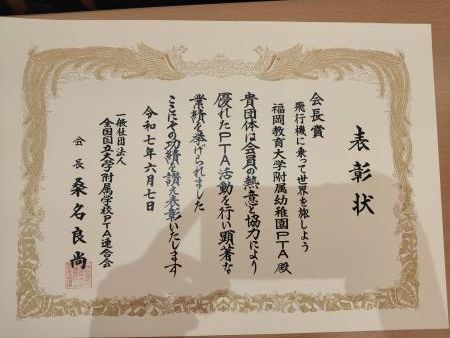 表彰状
会長賞
飛行機に乗って世界を旅しよう
福岡教育大学附属幼稚園PTA 殿
貴団体は会員の熱意と協力により
優れたPTA活動を行い顕著な
業績を挙げられました
ここにその功績を讃え表彰いたします
令和七年六月七日
一般社団法人
全国国立大学附属学校PTA連合会
会長 桑名良尚